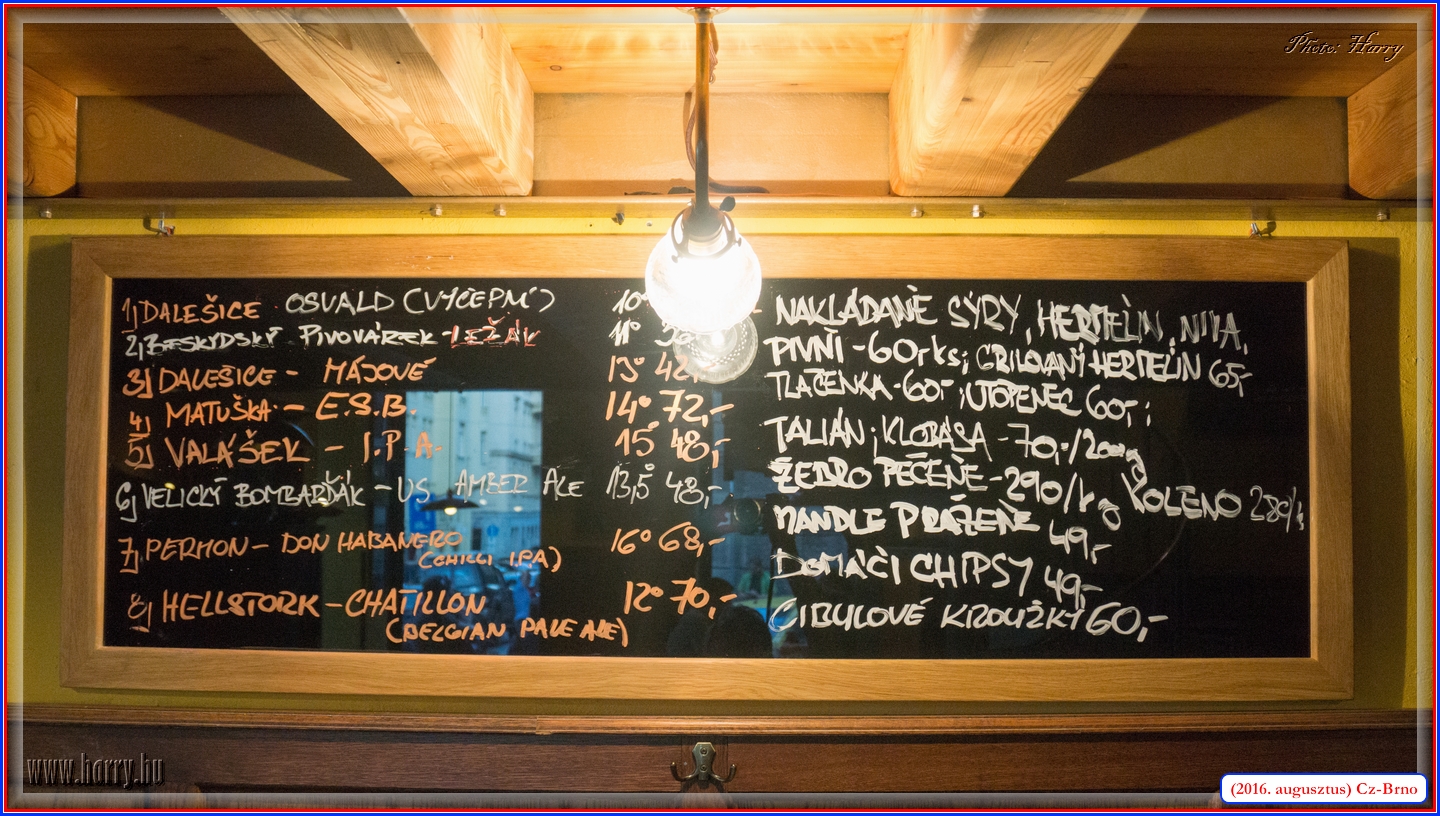 Photo: Harry
1) DALEŠICE OSVALD (VÝČEPNÍ) 10°
2) BESKYDSKÝ PIVOVÁREK - LEŽÁK 11°
3) DALEŠICE - MÁJOVÉ 13° 42,-
4) MATUŠKA - E.S.B. 14° 72,-
5) VALÁŠEK - I.P.A. 15° 48,-
6) VELICKÝ BOMBARĎÁK - US AMBER ALE 13,5° 48,-
7) PERMON - DON HABANERO 16° 68,-
(CHILLI IPA)
8) HELLSTORK - CHATILLON 12° 70,-
(BELGIAN PALE ALE)
NAKLÁDANÉ SÝRY, HERMELÍN, NIVA,
PIVNÍ - 60,-/ks; GRILOVANÝ HERMELÍN 65,-
TLAČENKA - 60,-; UTOPENEC 60,-;
TALIÁN; KLOBÁSA - 70,-/200g
ŽEBRO PEČENÉ - 290/kg KOLENO 280/
MANDLE PRAŽENÉ 49,-
DOMÁČÍ CHIPSY 49,-
CIBULOVÉ KROUŽKY 60,-
www.harry.hu
(2016. augusztus) Cz-Brno